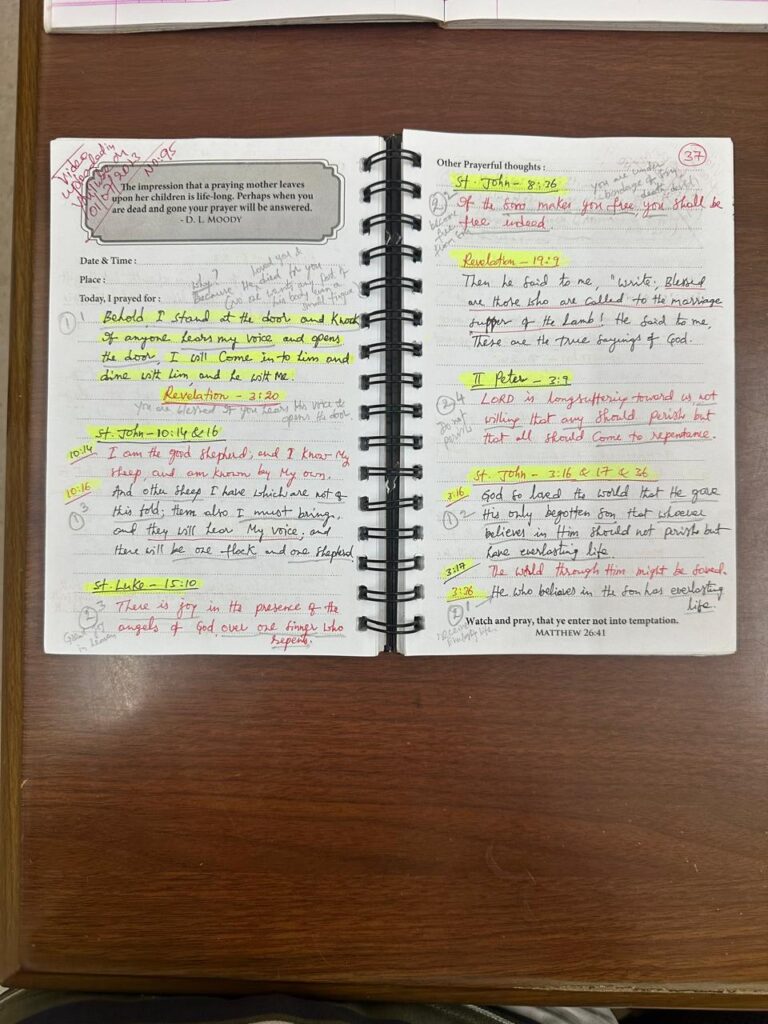 Video
uploaded in
01/07/2023
NO:95
The impression that a praying mother leaves
upon her children is life-long. Perhaps when you
are dead and gone your prayer will be answered.
- D. L. MOODY
Date & Time :
Place :
Today, I prayed for :
why? loved you &
Because He died for you
1 1 Behold, I stand at the door and knock
If anyone hears my voice and opens
the door, I will come in to him and
dine with him and he with Me.
Revelation - 3:20
you are blessed if you hears His voice &
opens the door.
St. John - 10:14 & 16
10:14 I am the good shepherd, and I know My
sheep, and am known by My own.
10:16 And other sheep I have which are not of
1 3 this fold; them also I must bring,
and they will hear My voice, and
there will be one flock and one shepherd
St. Luke - 15:10
2 3 There is joy in the presence of the
angels of God, over one sinner who
repents.
in heaven
37
Other Prayerful thoughts :
St. John - 8:36
you are under
bondage of
death, devil
2 If the Son makes you free, you shall be
free indeed
become
free
from
Revelation - 19:9
Then he said to me, "Write: Blessed
are those who are called to the marriage
supper of the Lamb! He said to me,
These are the true sayings of God.
II Peter - 3:9
2 4 LORD is longsuffering toward us, not
willing that any should perish but
that all should come to repentance.
Do not
perish
St. John - 3:16 & 17 & 36
3:16 God so loved the world that He gave
1 2 His only begotten Son that whoever
believes in Him should not perish but
have everlasting life
3:17 The world through Him might be saved.
3:36 He who believes in the Son has everlasting
2 1 life.
Watch and pray, that ye enter not into temptation.
MATTHEW 26:41